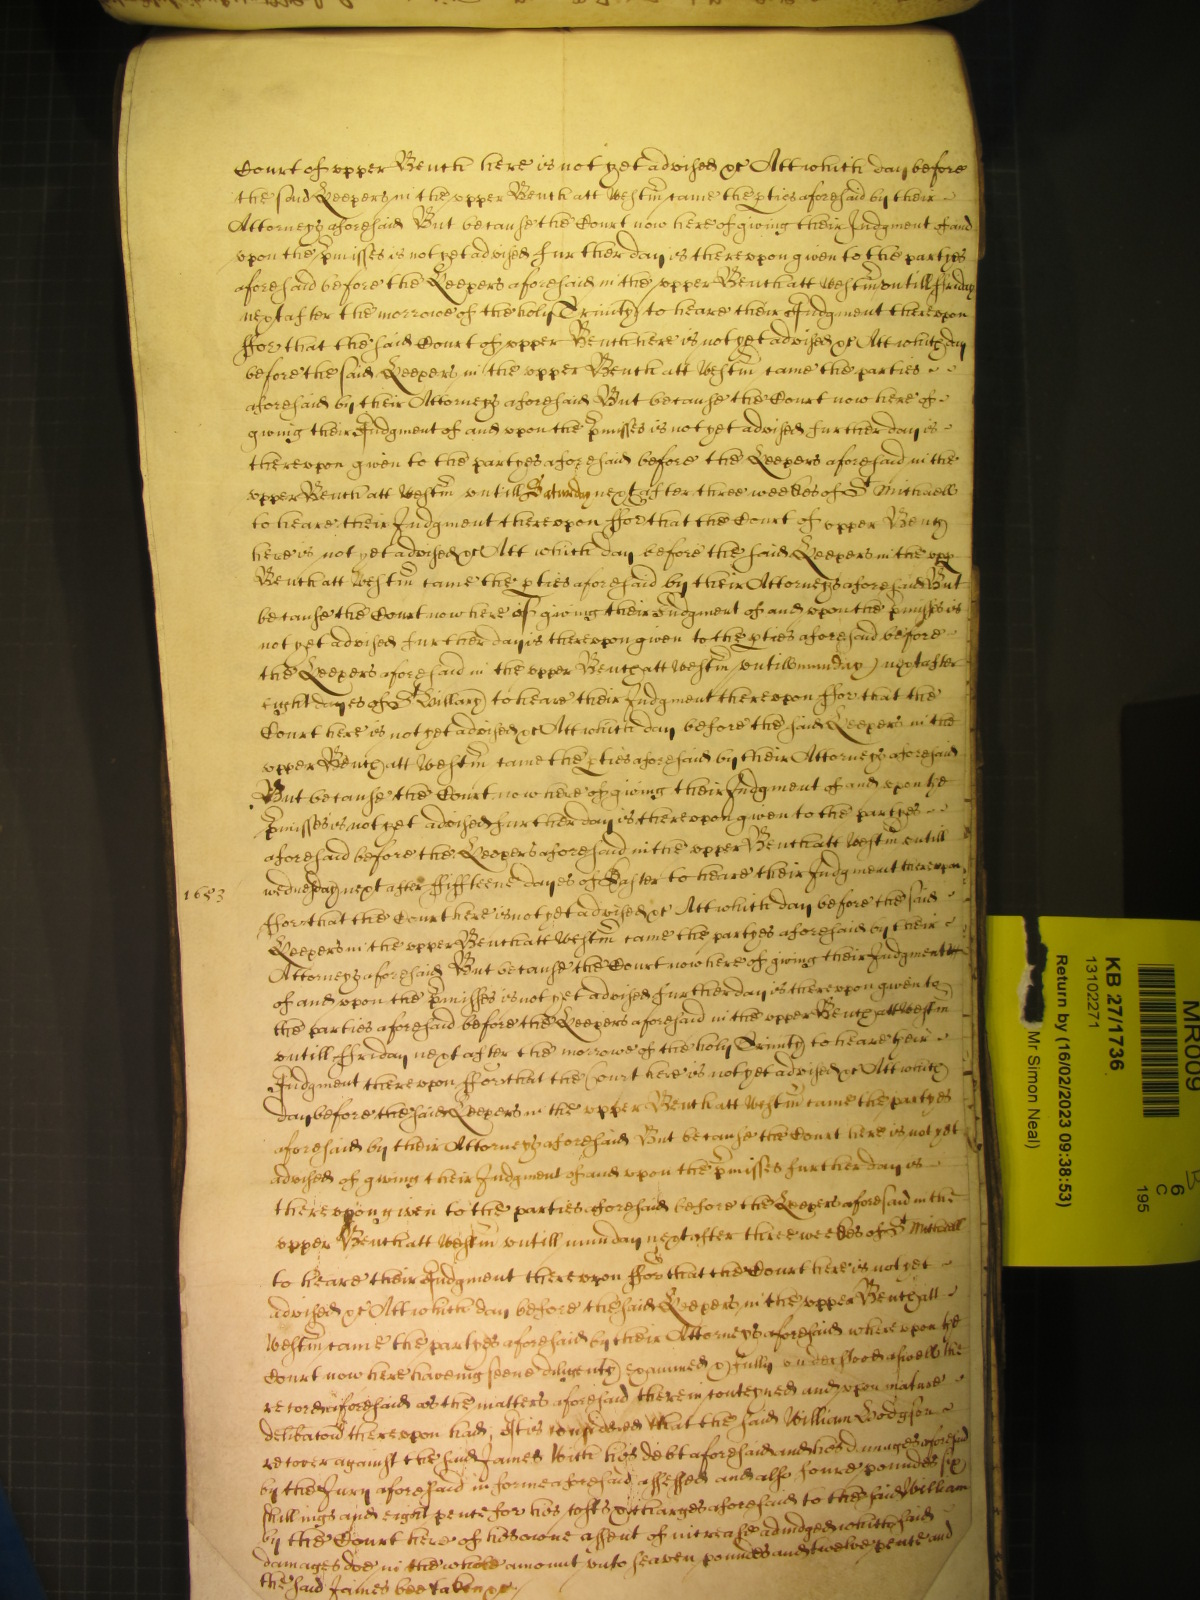 Court of upper Bench here is not yet advised &c Att which day before
the said Keepers in the upper Bench att Westm came the pties aforesaid by their
Attorneys aforesaid But because the Court now here of giving their Judgment of and
upon the pmisses is not yet advised further day is thereupon given to the partyes
aforesaid before the Keepers aforesaid in the upper Bench att Westm untill ffriday
next after the morrowe of the holy Trinity to heare their Judgment thereupon
ffor that the said Court of upper Bench here is not yet advised &c Att which day
before the said Keepers in the upper Bench att Westm came the parties
aforesaid by their Attorneys aforesaid But because the Court now here of
giving their Judgment of and upon the pmisses is not yet advised further day is
thereupon given to the partyes aforesaid before the Keepers aforesaid in the
upper Bench att Westm untill Saturday next after three weekes of St Michaell
to heare their Judgment thereupon ffor that the Court of upper Bench
here is not yet advised &c Att which day before the said Keepers in the upp
Bench att Westm came the pties aforesaid by their Attorneys aforesaid But
because the Court now here of giving their Judgment of and upon the pmisses is
not yet advised further day is thereupon given to the pties aforesaid before
the Keepers aforesaid in the upper Bench att Westm untill munday next after
eight dayes of St Hillary to heare their Judgment thereupon ffor that the
Court here is not yet advised &c Att which day before the said Keepers in the
upper Bench att Westm came the pties aforesaid by their Attorneys aforesaid
But because the Court now here of giving their Judgment of and upon the
pmisses is not yet advised further day is thereupon given to the partyes
aforesaid before the Keepers aforesaid in the upper Bench att Westm untill
1653 wednesday next after ffifteene dayes of Easter to heare their Judgment thereupon
ffor that the Court here is not yet advised &c Att which day before the said
Keepers in the upper Bench att Westm came the partyes aforesaid by their
Attorneys aforesaid But because the Court now here of giving their Judgment
of and upon the pmisses is not yet advised further day is thereupon given to
the parties aforesaid before the Keepers aforesaid in the upper Bench att Westm
untill ffriday next after the morrowe of the holy Trinity to heare their
Judgment thereupon ffor that the Court here is not yet advised &c Att which
day before the said Keepers in the upper Bench att Westm came the partyes
aforesaid by their Attorneys aforesaid But because the Court here is not yet
advised of giving their Judgment of and upon the pmisses further day is
thereupon given to the parties aforesaid before the Keepers aforesaid in the
upper Bench att Westm untill munday next after three weekes of St Michaell
to heare their Judgment thereupon ffor that the Court here is not yet
advised &c Att which day before the said Keepers in the upper Bench att
Westm came the partyes aforesaid by their Attorneys aforesaid whereupon the
Court now here haveing seene diligently examined & fully understood aswell the
record aforesaid as the matters aforesaid therein conteyned and upon mature
deliberacon thereupon had It is considered that the said William Hodgson
recover against the said James Witt his debt aforesaid and his damages aforesaid
by the Jury aforesaid in forme aforesaid assessed and also foure poundes six
shillings and eight pence for his costs & charges aforesaid to the said William
by the Court here of his owne assent of increase adiudged which said
damages doe in the whole amount unto seaven poundes and twelve pence and
the said James bee taken &c
MR009
KB 27/1736
13102271
Return by (16/02/2023 09:38:53)
Mr Simon Neal)
6
C
195